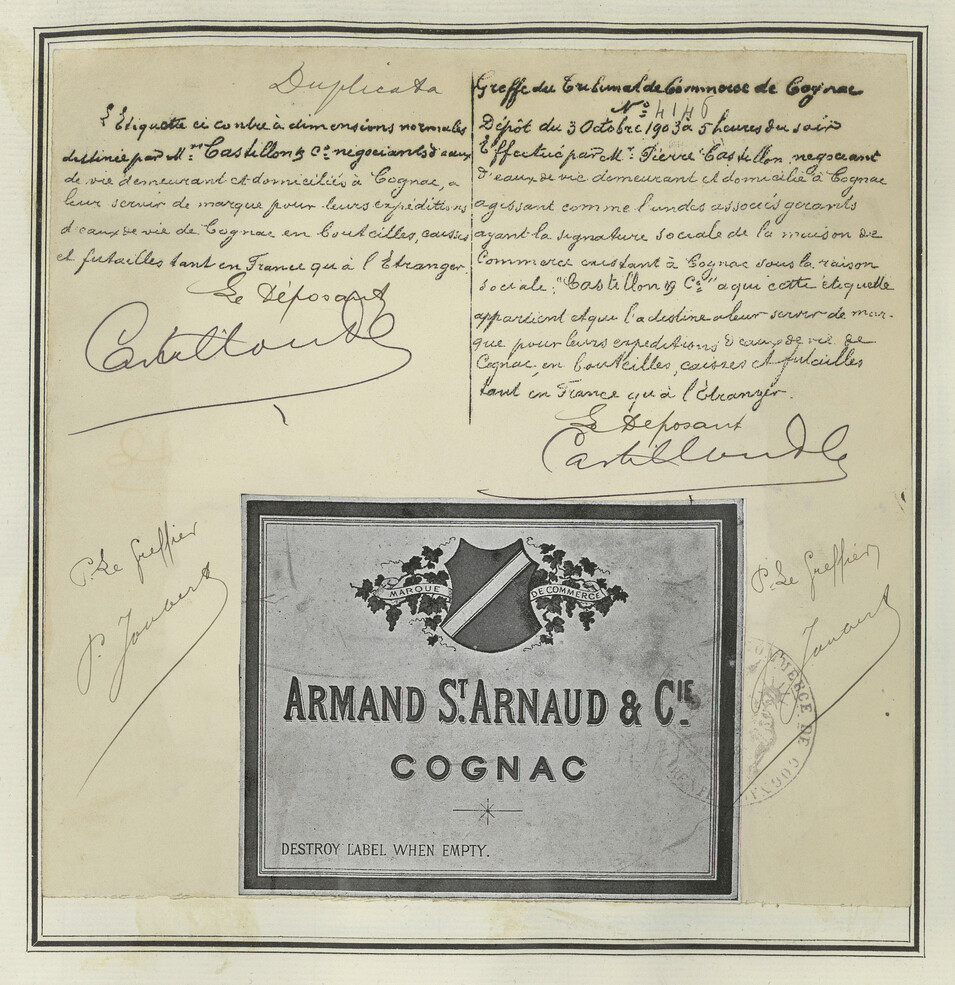 Duplicata
L'Etiquette ci contre à dimensions normales
destinée par Mrs Castillon & Ce negociants d'eaux
de vie demeurant et domiciliés à Cognac, a
leur servir de marque pour leurs expéditions
d'eaux de vie de Cognac en bouteilles, caisses
et futailles tant en France qu'à l'Etranger.
Le Déposant
Castillon & Ce
Greffe du Tribunal de Commerce de Cognac
No 4146
Dépôt du 3 Octobre 1903 à 5 heures du soir
Effectué par Mr Pierre Castillon, negociant
d'eaux de vie demeurant et domicilié à Cognac
agissant comme l'un des associés gerants
ayant la signature sociale de la maison de
Commerce existant à Cognac sous la raison
sociale; "Castillon & Ce" a qui cette étiquette
appartient et qui l'a destine a leur servir de mar-
que pour leurs expéditions d'eaux de vie de
Cognac, en bouteilles, caisses et futailles
tant en France qu'à l'Etranger.
Le Déposant
Castillon & Ce
P. Le Greffier
P. Joubert
P. Le Greffier
P. Joubert
MARQUE DE COMMERCE
ARMAND ST. ARNAUD & CIE
COGNAC
DESTROY LABEL WHEN EMPTY.
COMMERCE DE COGNAC